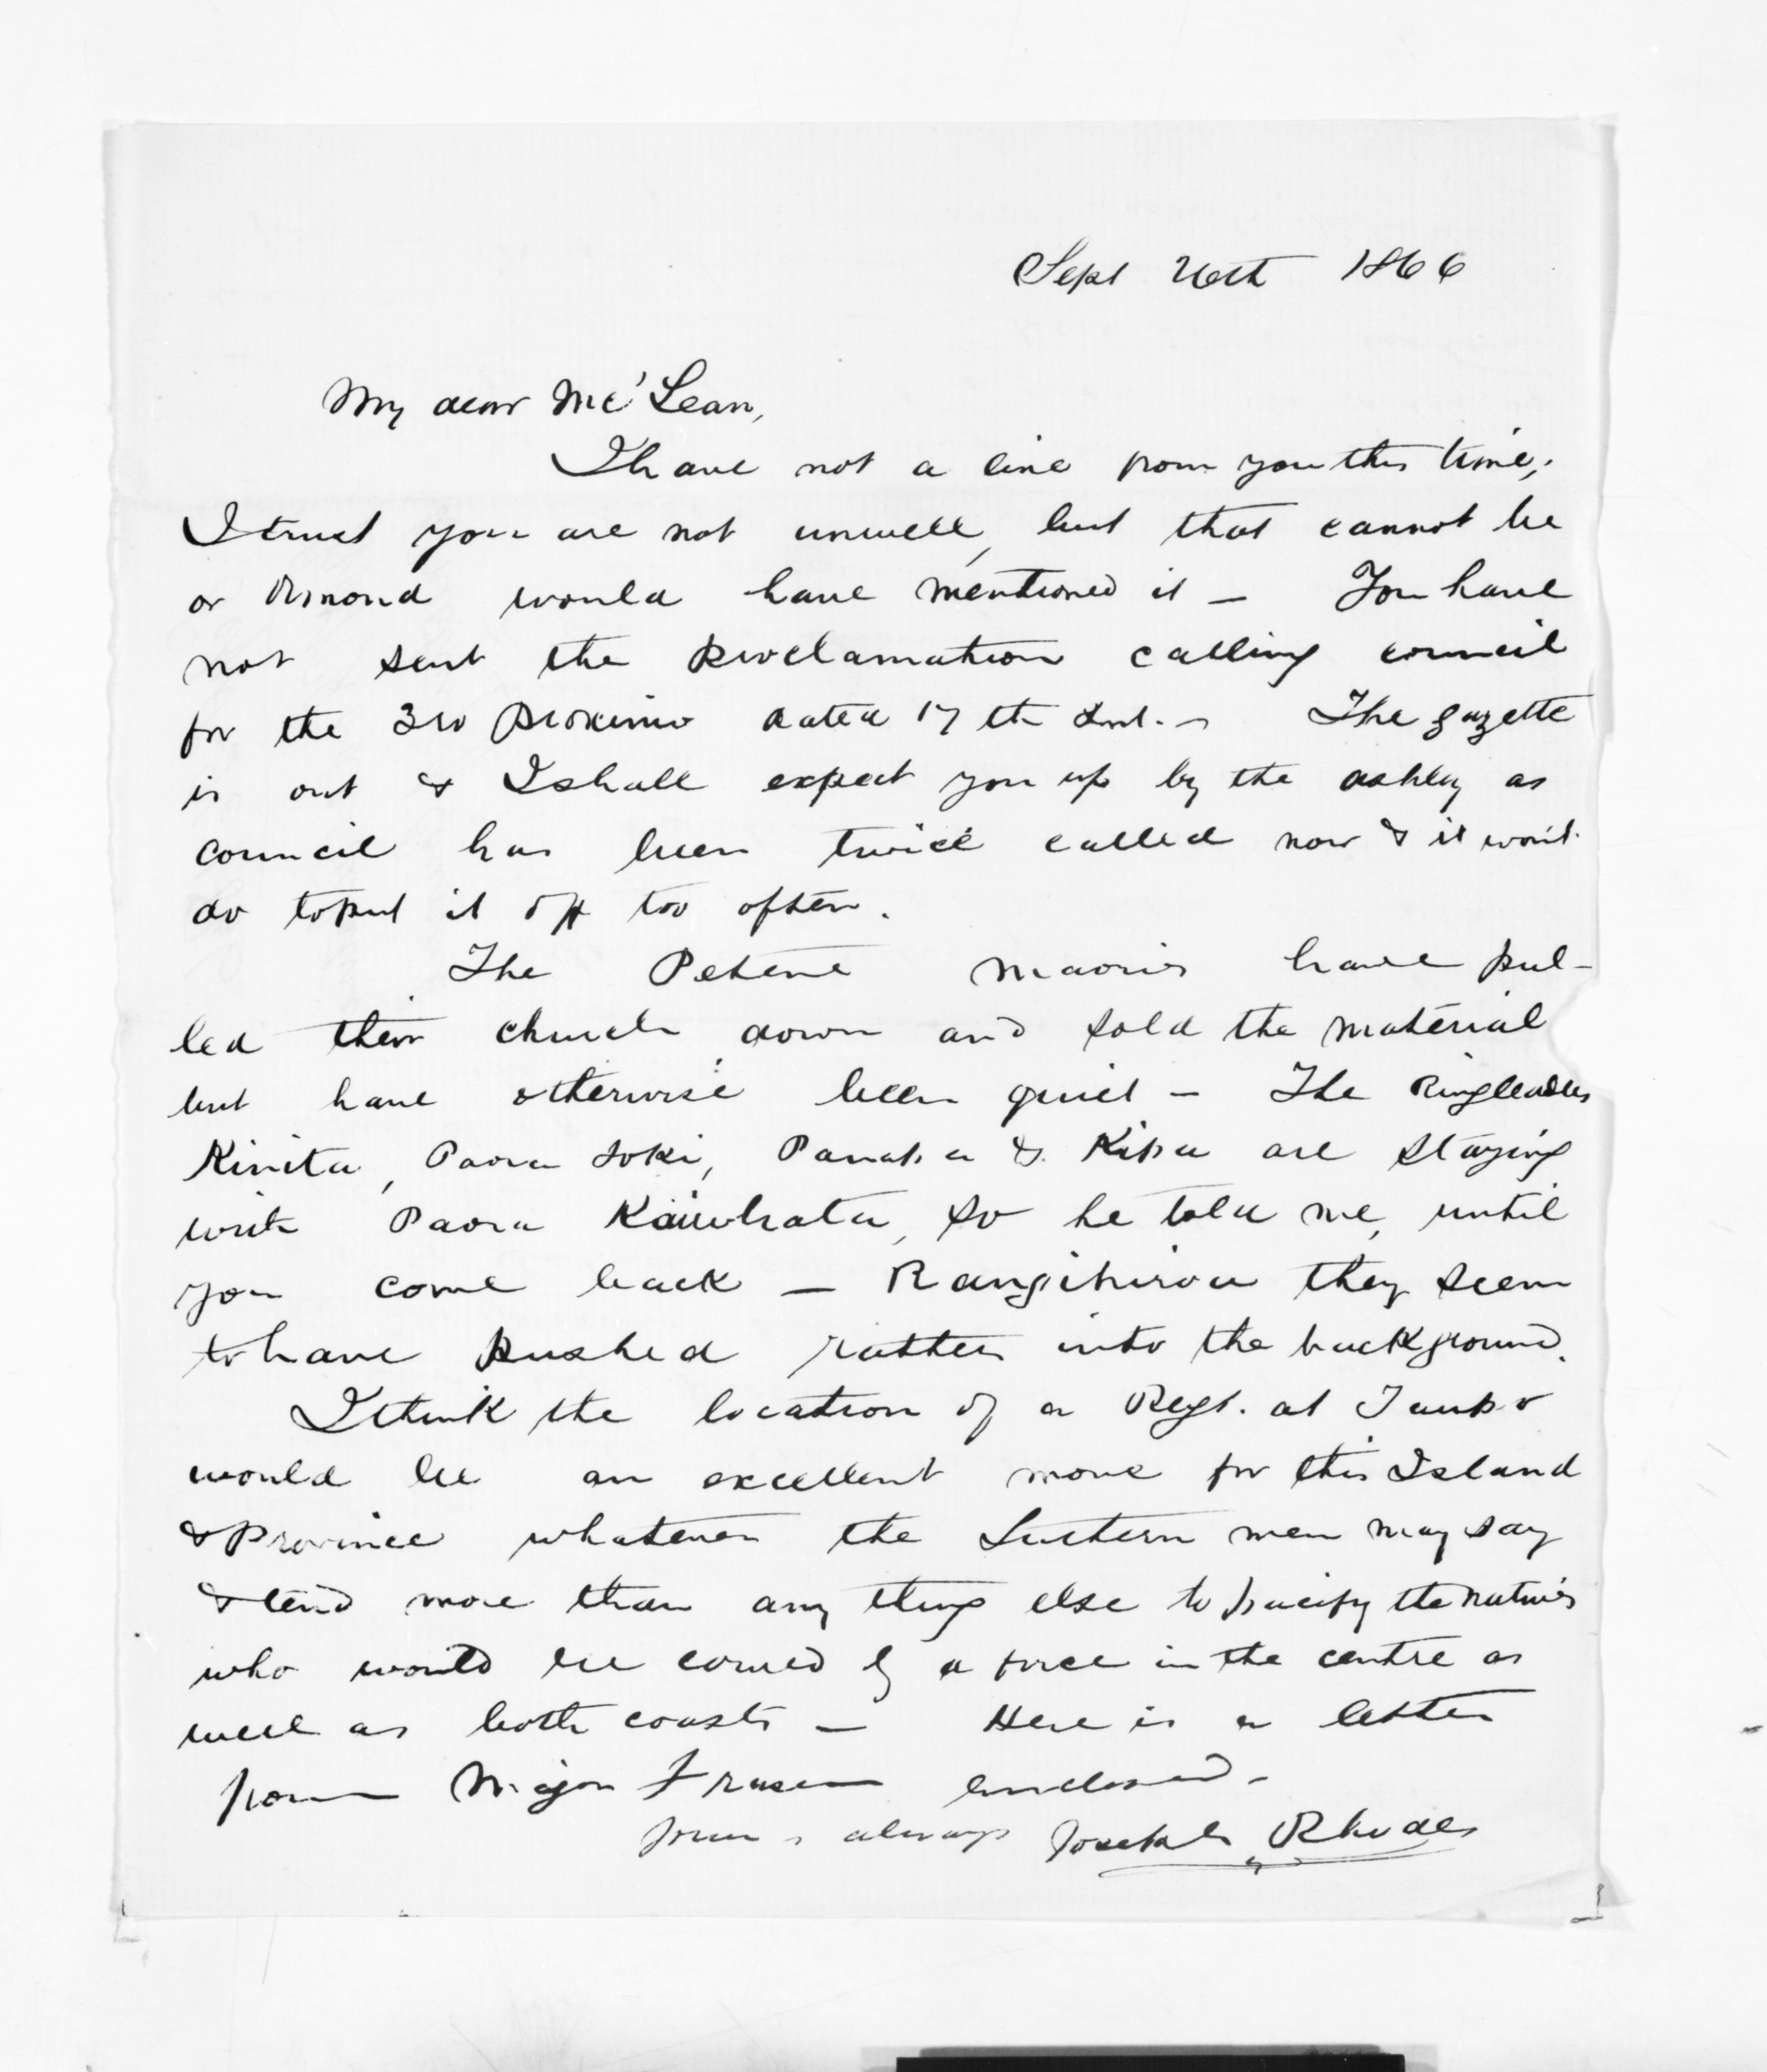 Sept 26th 1866
My dear Mc'Lean,
I have not a line from you this time,
I trust you are not unwell, but that cannot be
or Ormond would have mentioned it – You have
not sent the proclamation calling council
for the 3rd Proximo dated 17th Inst. – The gazette
is out & I shall expect you up by the ashley as
council has been twice called now & it won't
do to put it off too often.
The Petane maoris have pul-
led their church down and sold the material
but have otherwise been quiet – The Ringleaders
Kinita, Paora Toki, Panapa & Kipa are staying
with Paora Kaiwhata, so he told me, until
you come back – Rangihiroa they seem
to have pushed rather into the background.
I think the location of a Regt. at Taupo
would be an excellent move for this Island
& Province whatever the Suthern men may say
& tend more than any thing else to pacify the natives
who would be cowed by a force in the centre as
well as both coasts – Here is a letter
from Major Fraser enclosed –
Yours always Joseph Rhodes